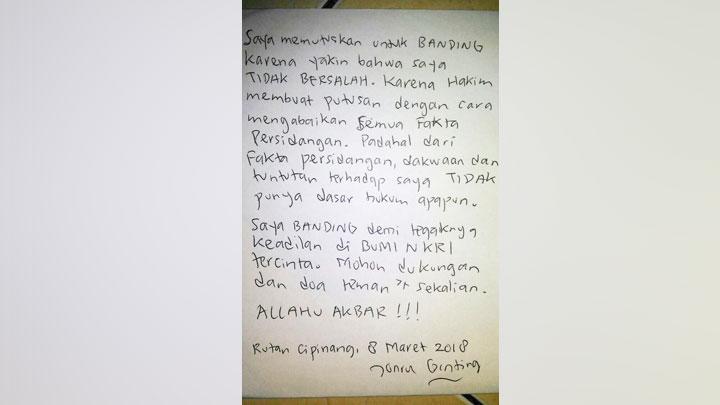 Saya memutuskan untuk BANDING
karena yakin bahwa saya
TIDAK BERSALAH. Karena Hakim
membuat putusan dengan cara
mengabaikan Semua Fakta
Persidangan. Padahal dari
Fakta persidangan, dakwaan dan
tuntutan terhadap saya TIDAK
punya dasar hukum apapun.
Saya BANDING demi tegaknya
Keadilan di BUMI NKRI
tercinta. Mohon dukungan
dan doa teman 2x sekalian.
ALLAHU AKBAR !!!
Rutan Cipinang, 8 Maret 2018
Jonru Ginting